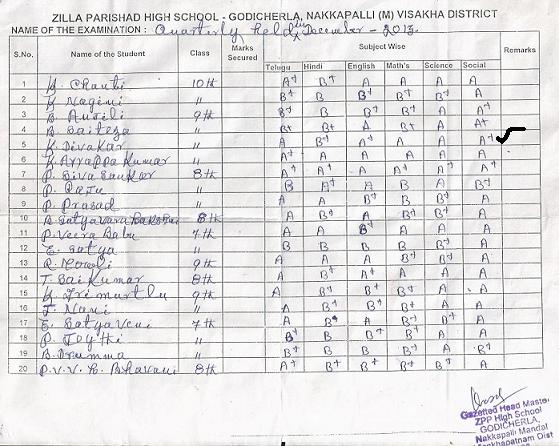 ZILLA PARISHAD HIGH SCHOOL - GODICHERLA, NAKKAPALLI (M) VISAKHA DISTRICT
NAME OF THE EXAMINATION : Quarterly held in December - 2013.
S.No. Name of the Student Class Marks Secured Subject Wise Remarks
Telugu Hindi English Math's Science Social
1 K. Chanti 10th A+ B+ A A A A
2 K. Nagini " B+ B B+ B+ B+ A
3 9th B+ B B+ B+ A A+
4 B. Saiteja " B+ B+ A B+ A A+
5 K. Divakar " A B+ A+ A A A+
6 K. Arrappa Kumar " A+ A A A A A
7 P. Siva Sankar 8th A+ A+ A+ A A+ A+
8 P. Raju " B A+ A B A B+
9 P. Prasad " A A B+ B B+ A
10 B. 8th A B+ A B+ B+ A
11 P. Veera Babu 7th A A B+ A A A
12 E. Satya " B B B B B+ A
13 R. Mowli 9th A A A B+ B+ A
14 T. Sai Kumar 8th A B+ A+ A A A
15 K. Trimurtulu 9th A B+ B+ A A A
16 T. Nani " A B+ B+ B+ A A
17 E. Satyaveni 7th A B+ A B+ B+ A
18 P. Jyothi " B+ B B+ B+ A A
19 B. Dramma " B+ B B B A B+
20 P.V.V.S. Bhavani 8th A+ B+ B+ B+ B+ A
Gazetted Head Master
ZPP High School
GODICHERLA,
Nakkapalli Mandal
Dist